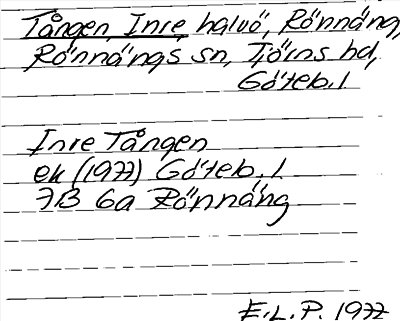 Tången, Inre, halvö, Rönnäng,
Rönnängs sn, Tjörns hd,
Göteb. l
Inre Tången
ek (1977) Göteb. l
7B 6a Rönnäng
E.L.P. 1977